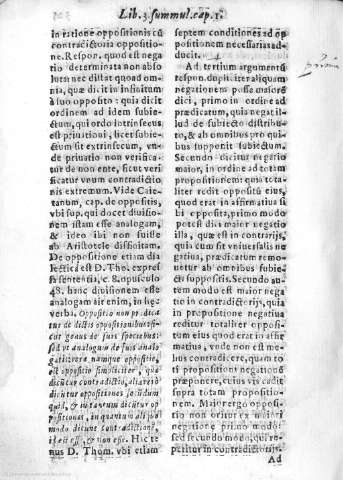 Lib. 3. summul. cap. 1.
in ratione oppositionis cũ
contradictoria oppositio-
ne. Respon. quod est nega-
tio determinata non abso
luta nec distat quoad om-
nia, quæ dicit in infinitum
à suo opposito: quia dicit
ordinem ad idem subie-
ctum, qui ordo intrinsecus
est priuationi, licet subie-
ctum sit extrinsecum, vn-
de priuatio non verifica-
tur de non ente, sicut veri
ficatur vnum contradictio
nis extremum. Vide Caie-
tanum, cap. de oppositis,
vbi sup. qui docet diuisio-
nem istam esse analogam,
& ideo ibi non fuisse
ab Aristotele
De oppositione etiam dia
lectica est D. Tho. expres
sa sententia, c. 8. opusculo
48. hanc diuisionem esse
analogam air enim, in hæc
verba, Oppositio non prædica
tur de dictis oppositionibus si-
cut genus de suis speciebus:
sed vt analogum de suis analo
gatis: vera namque oppositio,
est oppositio simpliciter, quæ
dicitur contradictio, aliæ verò
dicuntur oppositiones secundum
quid, & in tantum dicitur op
positiones, in quantum ali quo
modo dicunt contradictionē,
idest esse, & non esse. Hic te
nus D. Thom. vbi etiam
septem conditiones ad op
positionem necessarias ad-
ducit.
Ad tertium argumentū
respon. dupliciter aliquam
negationem posse maiorē
dici, primo in ordine ad
prædicatum, quia negat il-
lud de subiecto distribu-
to, & ab omnibus pro qui
bus supponit subiectum.
Secundo dicitur negatio
maior, in ordine ad totam
propositionem: quia tota-
liter tedit oppositū eius,
quod erat in affirmatiua si
bi opposita, primo modo
potest dici maior negatio
illa, quæ est in contrarijs,
quia cum sit vniuersalis ne
gatiua, prædicatum remo-
uetur ab omnibus subie-
cti suppositis. Secundo au-
tem modo est maior nega
tio in contradictorijs, quia
in propositione negatiua
redditur totaliter opposi-
tum eius quod erat in affir
matiua, vnde non est me-
lius contradicere, quam to
ti propositioni negationē
præponere, cuius vis cadit
supra totam propositio-
nem. Maior ergo oppositi
tio non oritur ex maiori
negatione primo modo;
sed secundo modo, qui re-
peritur in contradictorijs.
Ad